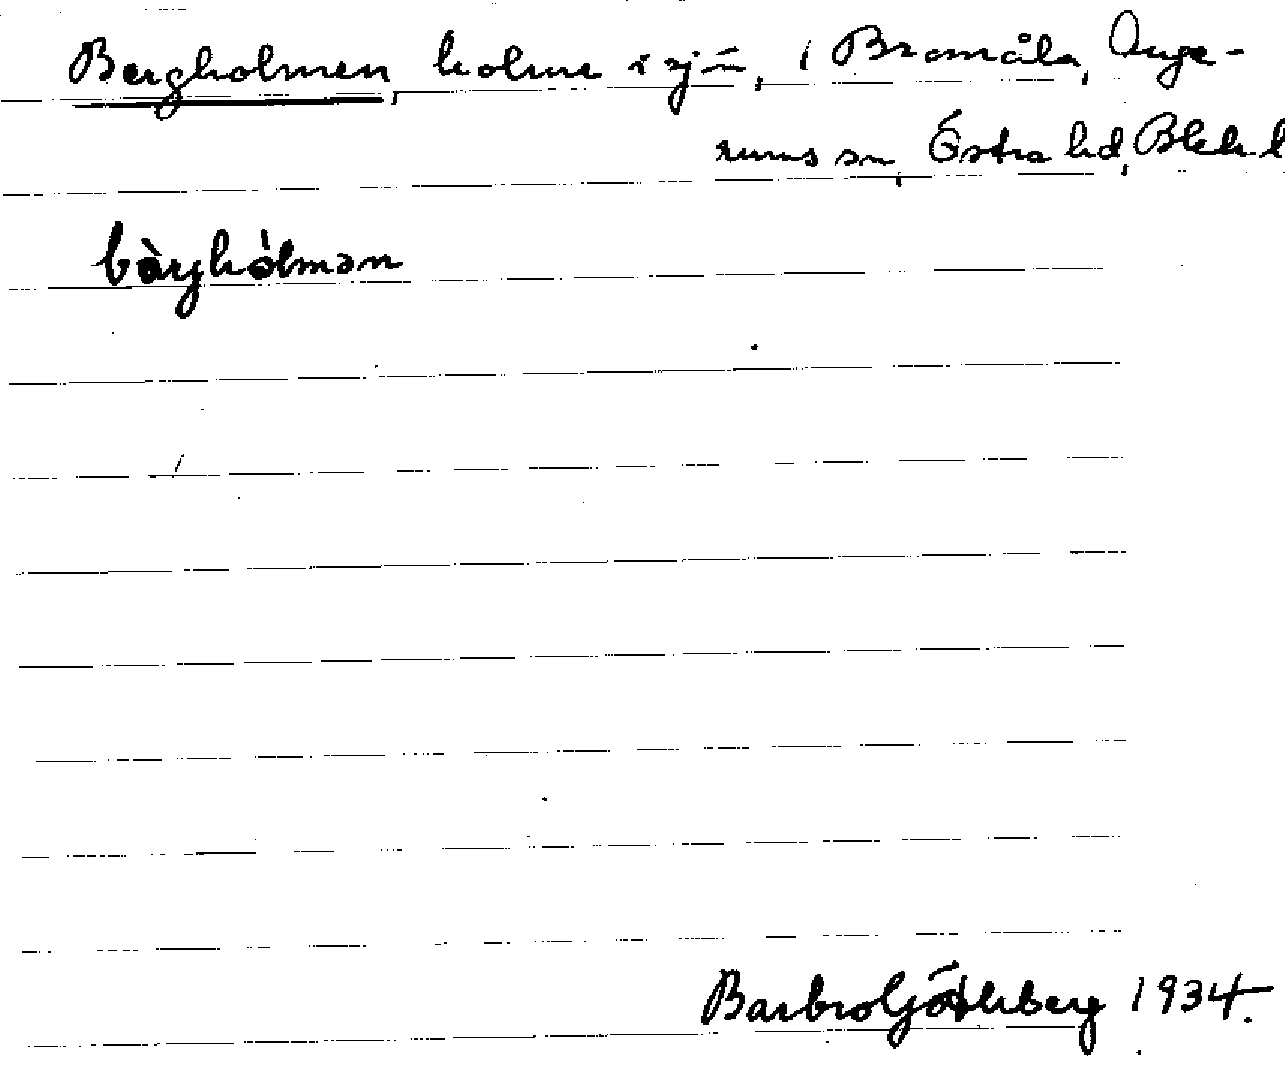 Bergholmen, holme i sjö, i Bromåla, Auge-
rums sn, Östra hd, Blek. l
bàrghòlmən
Barbro Götleberg 1934.